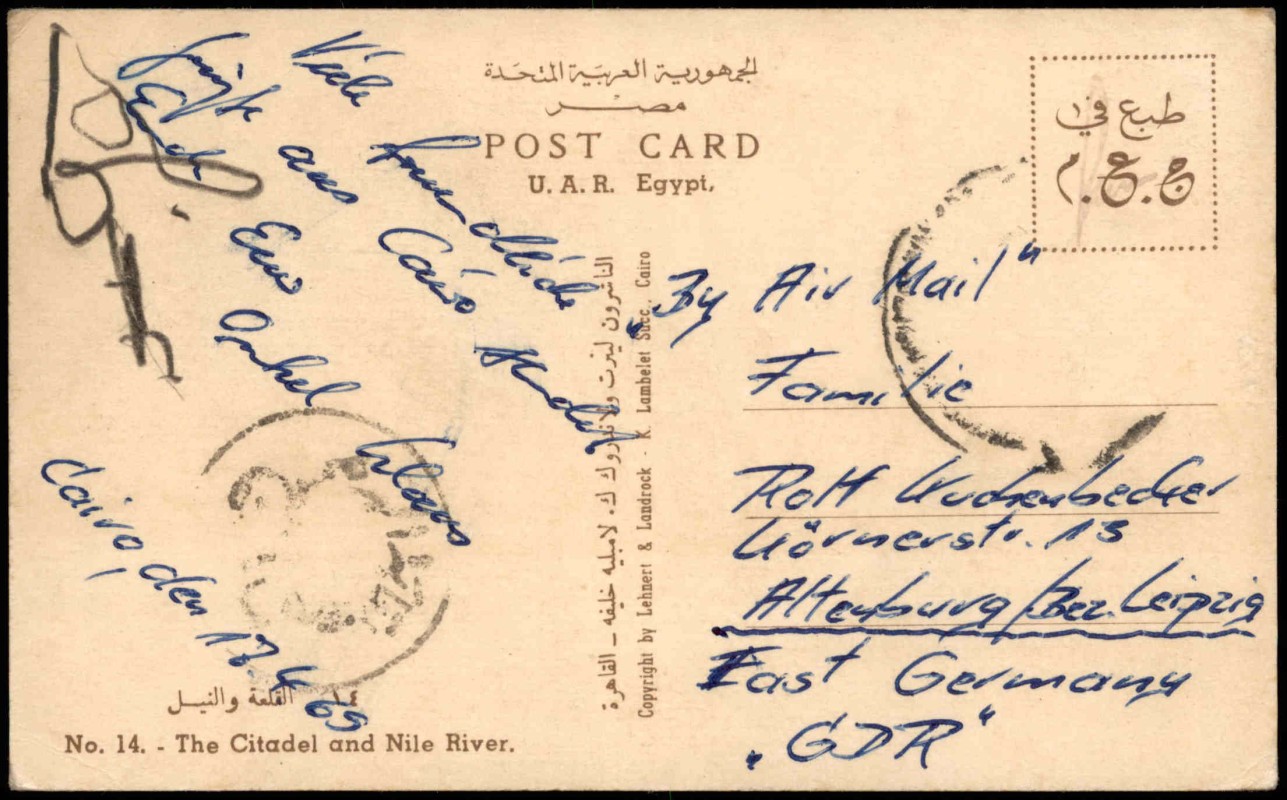 الجمهورية العربية المتحدة
مصر
POST CARD
U. A. R. Egypt,
طبع في
ج.ع.م
Viele freundliche
Grüße aus Cairo sendet
Euch Euer Onkel Klaus
Cairo, den 17.4.69
الناشرون لينرت ولاندروك ك. لامبليه خليفه - القاهرة
Copyright by Lehnert & Landrock - K. Lambelet Succ., Cairo
„By Air Mail"
Familie
Rolf Kuchenbecker
Körnerstr. 13
Altenburg/Bez. Leipzig
East Germany
„GDR"
١٤ القلعة والنيل
No. 14. - The Citadel and Nile River.